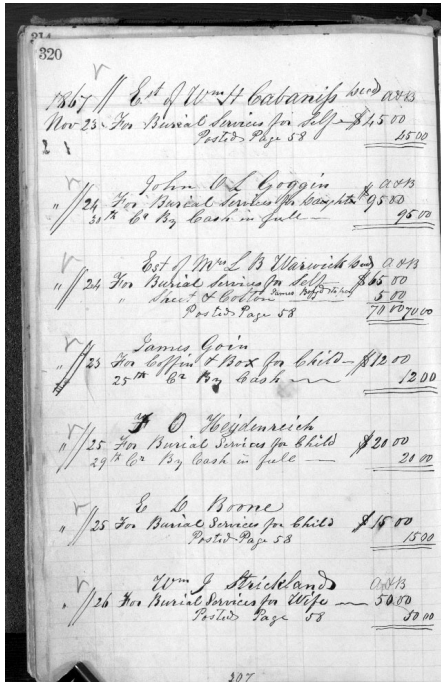 314
320
1867 Est of Wm H Cabaniss Decd A&B
Nov 23 For Burial Services for Self $45 00
Posted Page 58 45 00
John O L Goggin A&B
" 24 For Burial Services for Daughter $95 00
30th Cr By Cash in full 95 00
Est of Mrs L B Warwick Decd A&B
" 24 For Burial Services for Self $65 00
" Sheet & Cotton James 5 00
Posted Page 58 70 00 70 00
James Goin
" 23 For Coffin & Box for Child $12 00
25th Cr By Cash 12 00
F O Heydenreich
" 25 For Burial Services for Child $20 00
29th Cr By Cash in full 20 00
E D Boone
" 25 For Burial Services for Child $15 00
Posted Page 58 15 00
Wm J Strickland A&B
" 26 For Burial Services for Wife 50 00
Posted Page 58 50 00
207